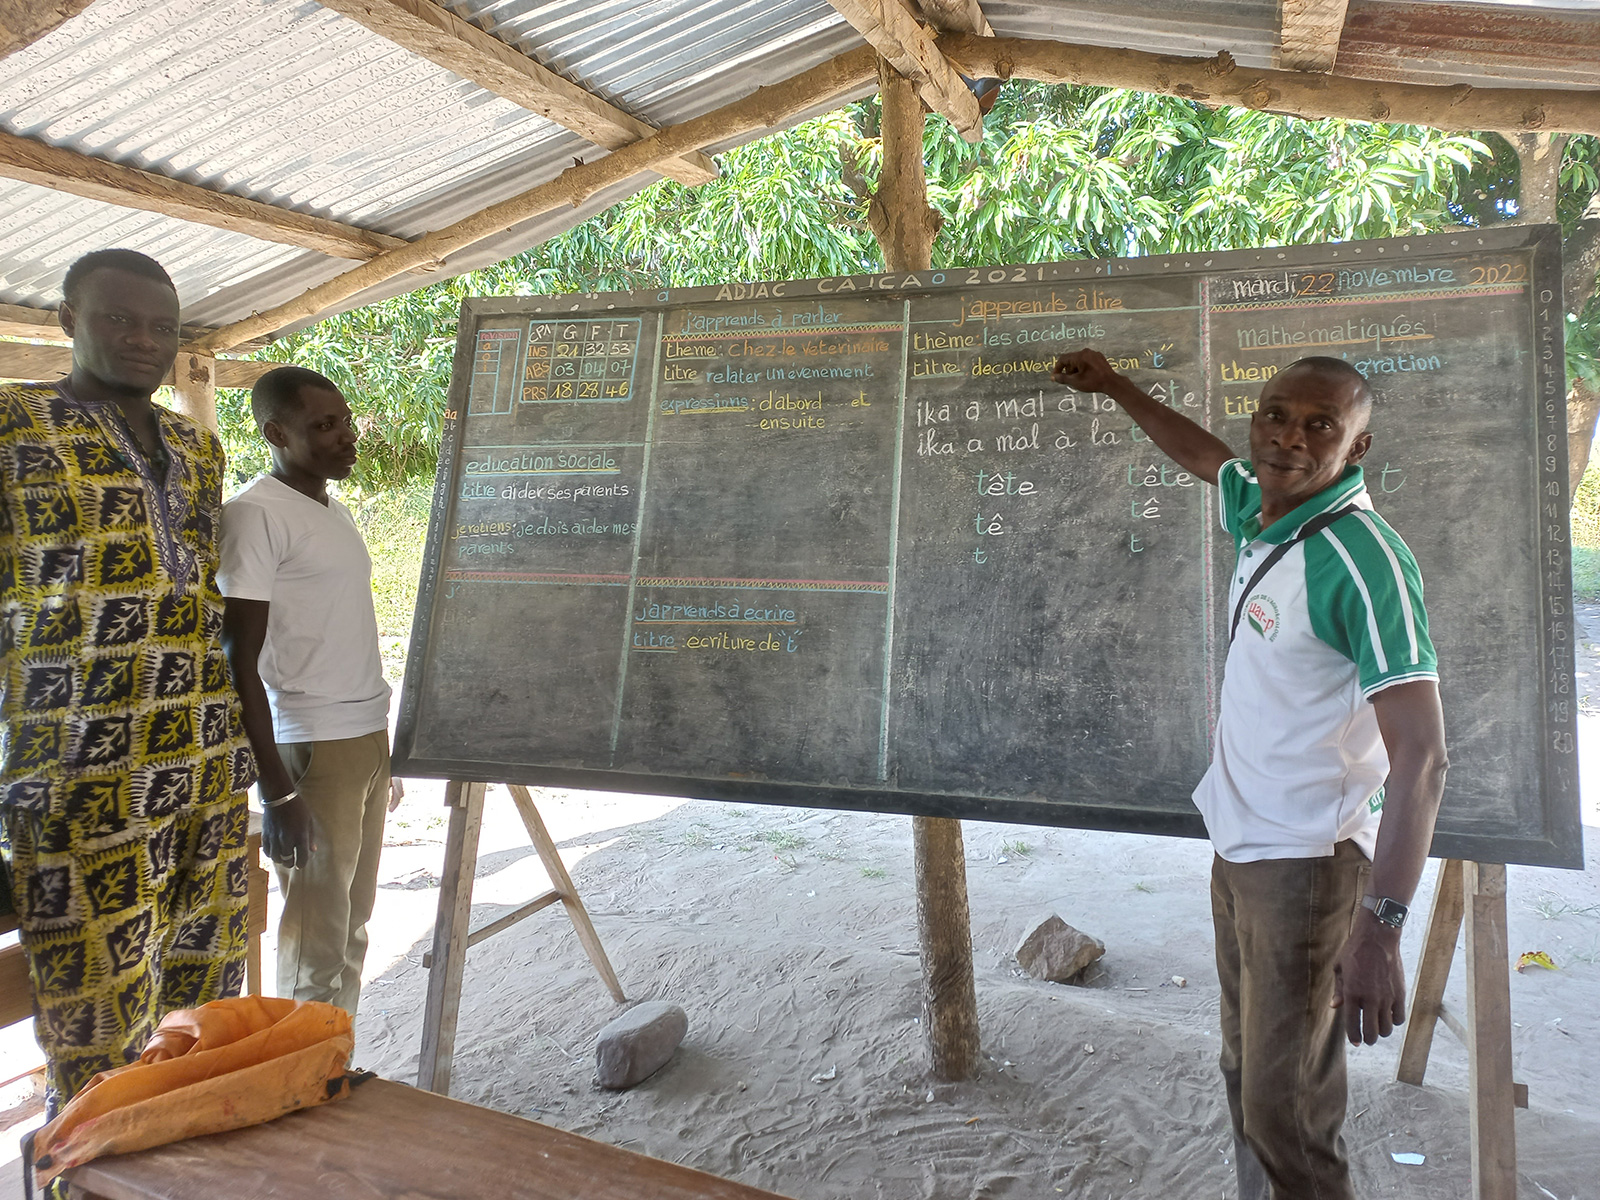 ADJAC CAJCAO 2021
revision
CP1 G F T
INS 21 32 53
ABS 03 04 07
PRS 18 28 46
education sociale
titre aider ses parents
je retiens: je dois aider mes
parents
j'apprends à parler
thème: chez le veterinaire
titre relater un évenement
expressions: d'abord et
ensuite
j'apprends à ecrire
titre: ecriture de "t"
j'apprends à lire
thème: les accidents
titre son "t"
ika a mal à la
ika a mal à la
tête tête
tê tê
t t
mardi, 22 novembre 2022
mathématiques
t
0
1
2
3
4
5
6
7
8
9
10
11
12
13
14
15
16
17
18
19
20
µar-p